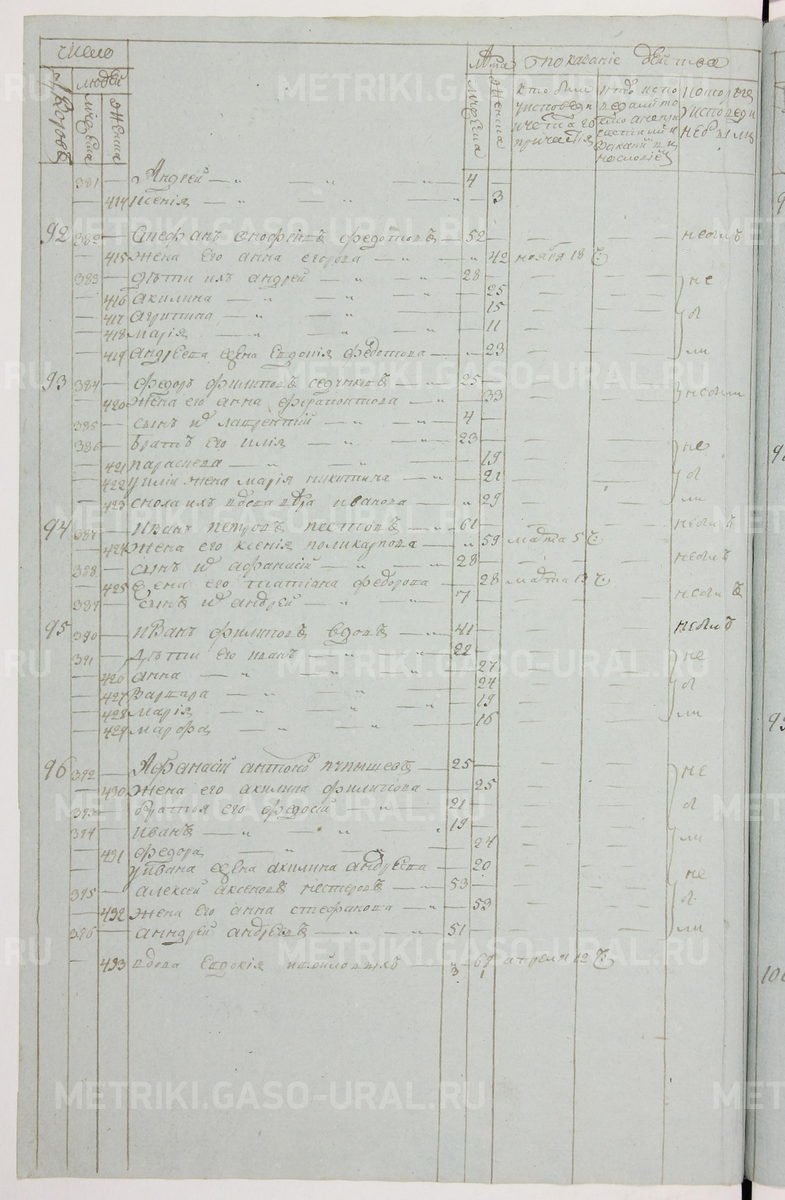 число Лѣта показанїе дѣйства
дворовъ людей
мужеска женска мужеска женска кто были у исповеди и с̃таго причастїя которые у исповеди небыли
381 — Андрей — „ — „ — 4 —
414 ксенїя — „ — „ — 3
92 382 — Стефанъ федотовъ — 52 — — — небылъ
415 жена его анна егорова — „ 42 ноября 18 ч:
383 — дѣти ихъ андрей — „ — 28 — — — не
416 акилина — „ — „ — 25 — —
417 агрипина — „ — „ — 15 — — бы
418 марїя — „ — „ — 11 — —
419 андреева жена евдокїя федотова — „ 23 — — ли
93 384 — федоръ филиповъ — 25 — — —
420 жена его анна ферапонтова — „ 33 — — небыли
385 — сынъ их лаврентїй — „ — 4 —
386 — братъ его илїя — „ — 23 — — — не
421 параскева — „ — „ — 19 — —
422 у илїи жена марїя никитина — „ 21 — — бы
423 сноха ихъ вдова иванова „ 29 — — ли
94 387 — Иванъ петровъ пестовъ — „ 61 — — — небылъ
424 жена его ксенїя поликарпова — „ 59 марта 5 ч:
388 — сынъ их афанасїй — „ — 28 — — — небылъ
425 жена его татїана федорова — 28 марта 12 ч:
389 — сынъ их андрей — „ — 7 — — — небылъ
95 390 — Иванъ филиповъ вдовъ — „ 41 — — — небылъ
391 — дѣти его иванъ — „ — 22 — — — не
426 анна — „ — „ — 27 — —
427 варвара — „ — „ — 24 — — бы
428 марїя — „ — „ — 19 — — ли
429 марфа — „ — „ — 16 — —
96 392 — Афанасїй антоновъ — 25 — — — не
430 жена его акилина филипова — 25 — —
393 — братья его федосїй „ 21 — — — бы
394 — иванъ — „ — „ — „ 19 — — — ли
431 федора — „ — „ — 24 — —
у ивана жена акилина андреева — 20 — — не
395 — алексей аксеновъ нестеровъ — 53 — — —
432 жена его анна стефанова — „ 53 — — бы
396 — анндрей андреевъ — „ — 51 — — — ли
433 вдова евдокїя — „ 61 апреля 12 ч:
3 1
METRIKI.GASO-URAL.RU